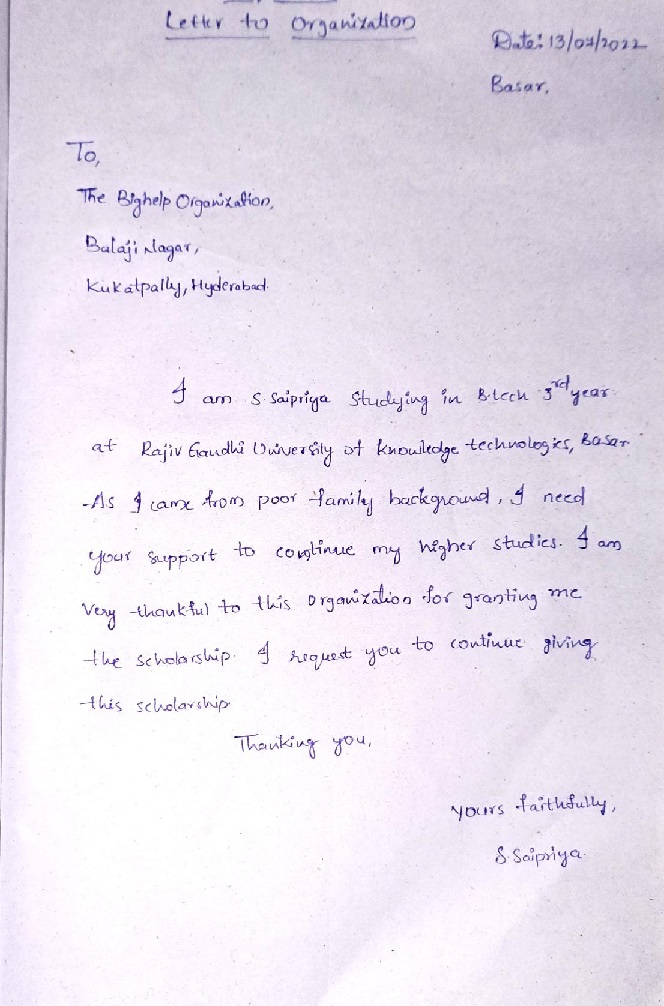 Letter to Organization
Date: 13/07/2022
Basar,
To,
The Bighelp Organization,
Balaji Nagar,
Kukatpally, Hyderabad.
I am S. Saipriya Studying in B.tech 3rd year
at Rajiv Gandhi University of knowledge technologies, Basar
As I came from poor family background, I need
your support to continue my higher studies. I am
Very thankful to this Organization for granting me
the scholarship. I request you to continue giving
this scholarship
Thanking you,
yours faithfully,
S. Saipriya.